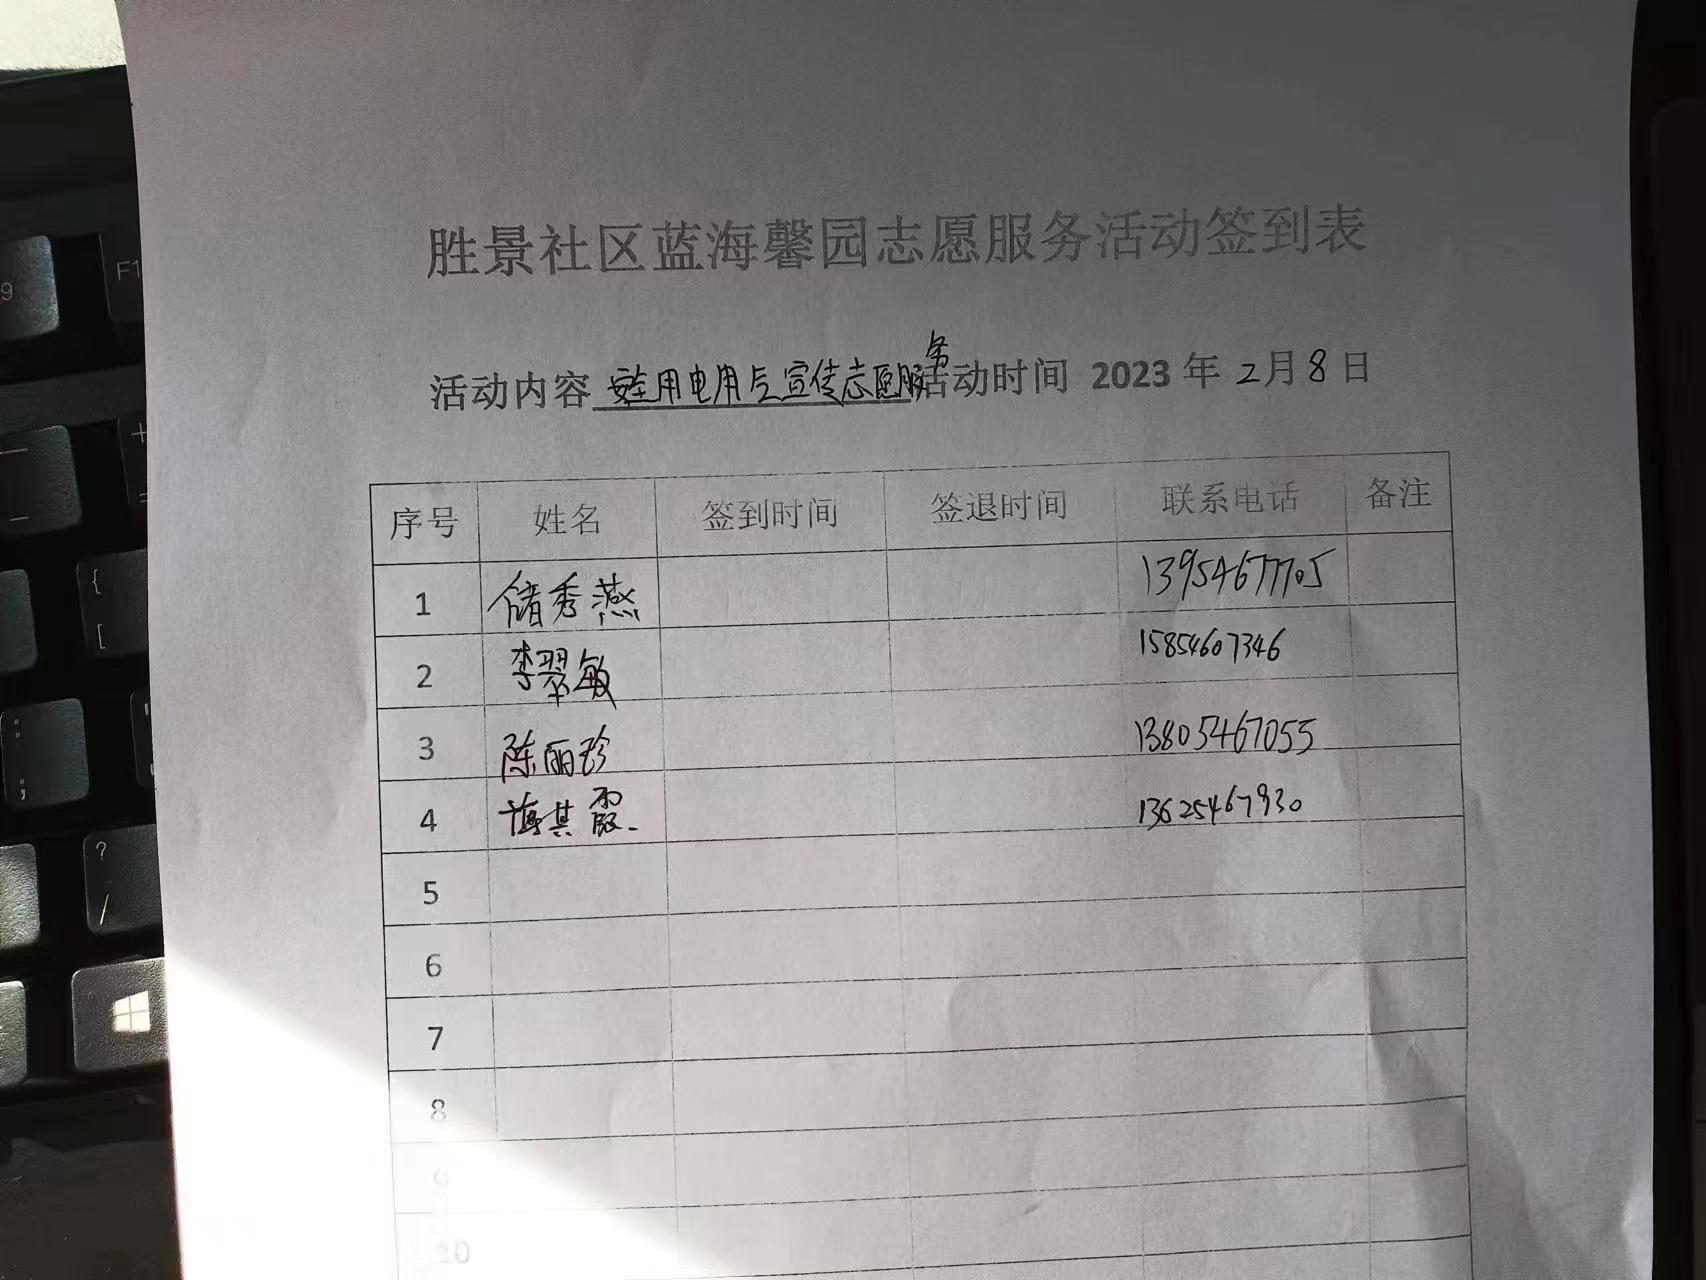 胜景社区蓝海馨园志愿服务活动签到表
活动内容 安全用电用气宣传志愿服务 活动时间 2023 年 2 月 8 日
序号 姓名 签到时间 签退时间 联系电话 备注
1 储秀燕 13954677705
2 李翠敏 15854607346
3 陈丽珍 13805467055
4 其霞 13625467930
5
6
7
8
9
10
F1
9
+
=
{
[
:
;
?
/